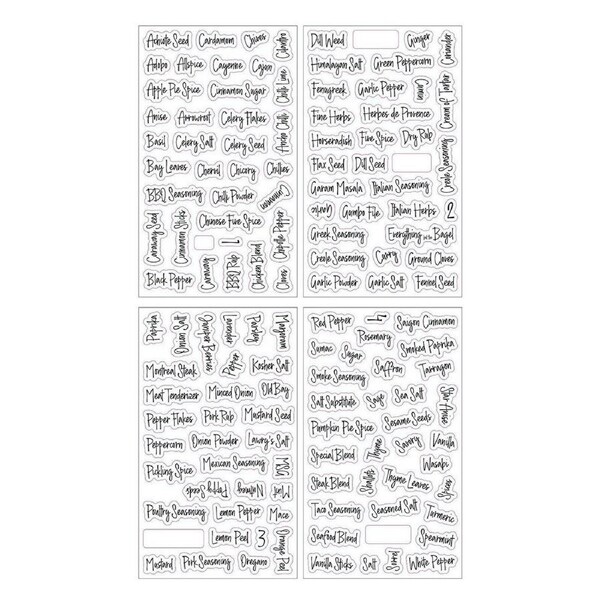 Achiote Seed Cardamom Chives Cilantro
Adobo Allspice Cayenne Cajun
Apple Pie Spice Cinnamon Sugar Chili Lime
Anise Arrowroot Celery Flakes
Basil Celery Salt Celery Seed Ancho Chili
Bay Leaves Chervil Chicory Chilies
BBQ Seasoning Chili Powder Cinnamon
Caraway Seed Cinnamon Sticks Chinese Five Spice Chipotle Pepper
1
Black Pepper Caraway BBQ Rub Chicken Blend Cloves
Dill Weed Ginger Coriander
Himalayan Salt Green Peppercorn
Fenugreek Garlic Pepper Cumin Cream of Tartar
Fine Herbs Herbes de Provence
Horseradish Five Spice Dry Rub
Flax Seed Dill Seed Creole Seasoning
Garam Masala Italian Seasoning
Garlic Gumbo File Italian Herbs 2
Greek Seasoning Everything but the Bagel
Creole Seasoning Curry Ground Cloves
Garlic Powder Garlic Salt Fennel Seed
Paprika Onion Salt Juniper Berries Lavender Parsley Marjoram
Pepper
Montreal Steak Kosher Salt
Meat Tenderizer Minced Onion Old Bay
Pepper Flakes Pork Rub Mustard Seed
Peppercorn Onion Powder Lawry's Salt
Pickling Spice Mexican Seasoning MSG
Poppy Seeds Nutmeg Mint
Poultry Seasoning Lemon Pepper Mace
Lemon Peel 3 Orange Peel
Mustard Pork Seasoning Oregano
Red Pepper 4 Saigon Cinnamon
Sumac Sugar Rosemary Smoked Paprika
Smoke Seasoning Saffron Tarragon
Salt Substitute Sage Sea Salt Star Anise
Pumpkin Pie Spice Sesame Seeds
Special Blend Thyme Savory Vanilla
Steak Blend Shallots Thyme Leaves Wasabi Spices
Taco Seasoning Seasoned Salt Turmeric
Seafood Blend Spearmint
Vanilla Sticks Salt Sorrel White Pepper